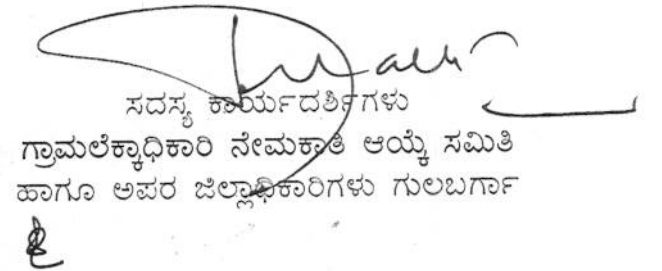 ಸದಸ್ಯ ಕಾರ್ಯದರ್ಶಿಗಳು
ಗ್ರಾಮಲೆಕ್ಕಾಧಿಕಾರಿ ನೇಮಕಾತಿ ಆಯ್ಕೆ ಸಮಿತಿ
ಹಾಗೂ ಅಪರ ಜಿಲ್ಲಾಧಿಕಾರಿಗಳು ಗುಲಬರ್ಗಾ